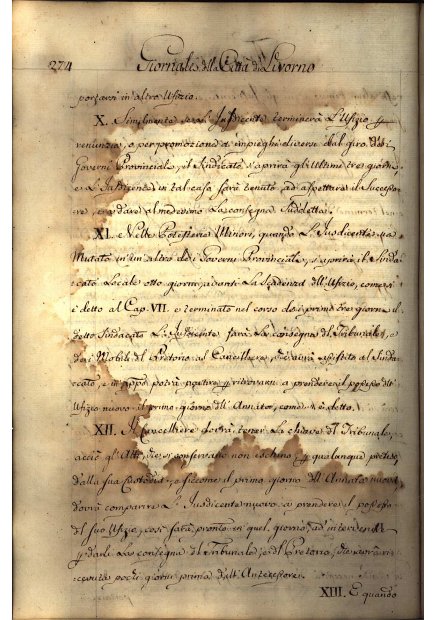 274 Giornale della Città di Livorno
portarsi in altro Ufizio.
X. Similmente se il Jusdicente terminerà l'Ufizio p
renunzia, o per promozione a impieghi diversi dal giro dei
Governi Provinciali, il Sindicato s'aprirà gli ultimi tre giorni
e il Jusdicente in tal caso sarà tenuto ad aspettare il Success
ore, e a dare al medesimo la consegna suddetta.
XI. Nelle Potesterie Minori, quando il Jusdicente sia
Mutato in un'altro dei Governi Provinciali, s'aprirà il Sinda
cato Locale otto giorni avanti la Scadenza dell'Ufizio, come s'
è detto al Cap. VII. e terminato nel corso dei primi tre giorni il
detto Sindacato il Jusdicente farà la consegna del Tribunale, e
dei Mobili del Pretorio al Cancelliere, che avrà assistito al Sinda
cato, e in appo potrà partire p ritrovarsi a prendere il possesso dell'
Ufizio nuovo il primo giorno dell'Annito, come s'è detto.
XII. Il Cancelliere dovrà tener la chiave del Tribunale,
acciò gl'Atti, che si conservano non eschino p qualunque pretesto
dalla sua Custodia, e siccome il primo giorno dell'Annata nuova
dovrà comparire il Jusdicente nuovo a prendere il possesso
del suo Ufizio, così sarà pronto in quel giorno ad intervenire
p darli la consegna del Tribunale, e del Pretorio, che avrà ri
cevuta pochi giorni prima dall'Antecessore.
XIII. E quando